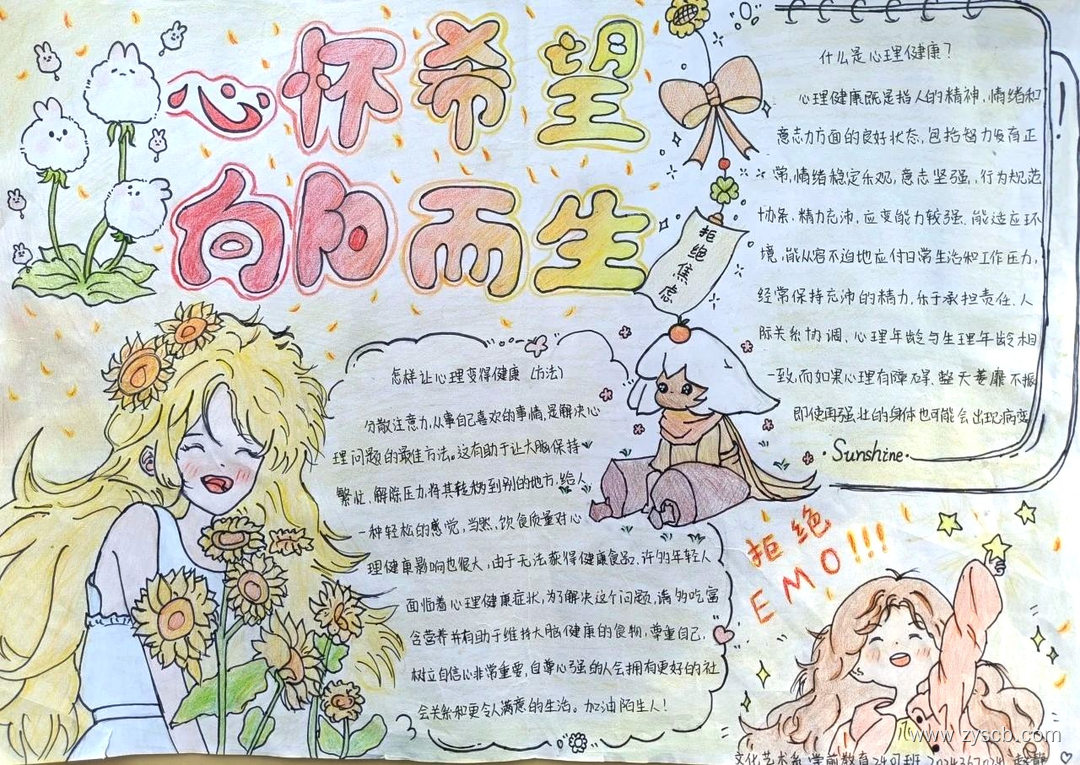 心怀希望
向阳而生
拒绝焦虑
什么是心理健康？
心理健康既是指人的精神、情绪和
意志力方面的良好状态，包括智力发育正
常，情绪稳定乐观，意志坚强，行为规范
协条、精力充沛，应变能力较强，能适应环
境，能从容不迫地应付日常生活和工作压力，
经常保持充沛的精力，乐于承担责任、人
际关系协调、心理年龄与生理年龄相
一致，而如果心理有障碍、整天萎靡不振
即使再强壮的身体也可能会出现病变
·Sunshine·
怎样让心理变得健康（方法）
分散注意力，从事自己喜欢的事情，是解决心
理问题的最佳方法。这有助于让大脑保持
繁忙、解除压力，将其转移到别的地方，给人
一种轻松的感觉，当然，饮食质量对心
理健康影响也很大，由于无法获得健康食品、许多年轻人
面临着心理健康症状，为了解决这个问题，请多吃富
含营养并有助于维持大脑健康的食物，尊重自己，
树立自信心非常重要，自尊心强的人会拥有更好的社
会关系和更令人满意的生活。加油陌生人！
拒绝
EMO!!!
文化艺术系 学前教育24 班 2024367024
www.zyscb.com